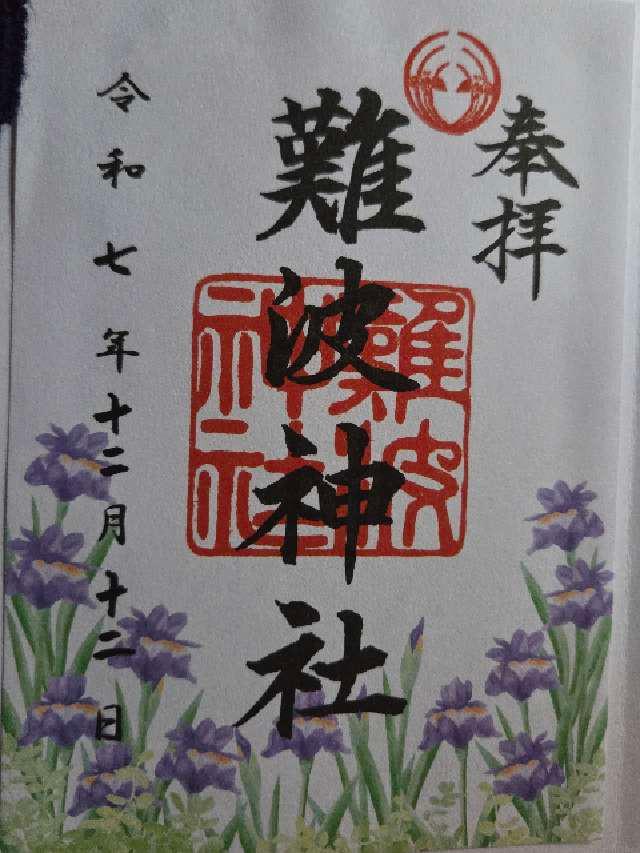 奉拝
難波神社
難波神社
令和七年十二月十二日